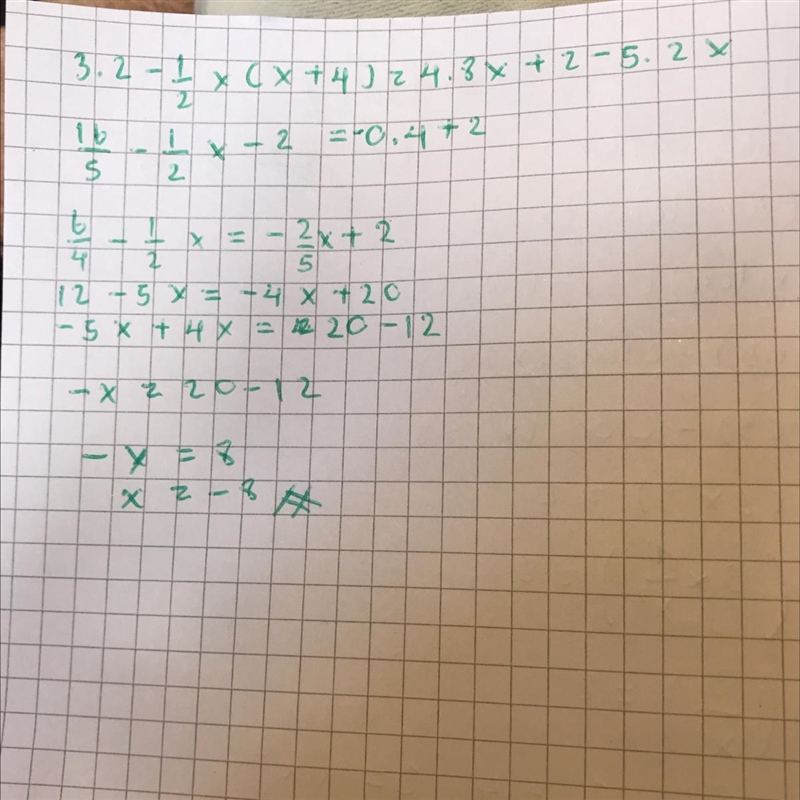 3.2 - 1/2 x (x+4) = 4.8x + 2 - 5.2x
16/5 - 1/2 x - 2 = -0.4 + 2
6/4 - 1/2 x = - 2/5 x + 2
12 - 5x = -4x + 20
-5x + 4x = 20 - 12
-x = 20 - 12
-x = 8
x = -8